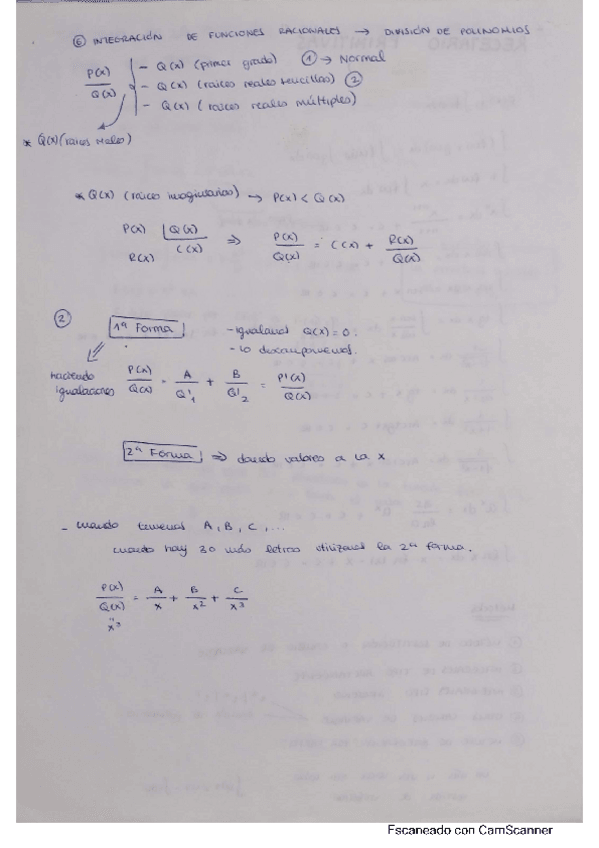 ⑥ INTEGRACIÓN DE FUNCIONES RACIONALES → DIVISIÓN DE POLINOMIOS
P(x)/Q(x)
- Q(x) (primer grado) ① → Normal
- Q(x) (raices reales sencillas) ②
- Q(x) (raices reales múltiples)
* Q(x) (raices reales)
* Q(x) (raices imaginarias) → P(x) < Q(x)
P(x) | Q(x)
R(x) C(x) ⇒ P(x)/Q(x) = C(x) + R(x)/Q(x)
②
1ª Forma
- igualamos Q(x) = 0.
- lo descomponemos.
haciendo igualaciones
P(x)/Q(x) = A/Q'₁ + B/Q'₂ = P'(x)/Q(x)
2ª Forma ⇒ dando valores a la x
- cuando tenemos A, B, C, ...
cuando hay 3 o más letras utilizamos la 2ª forma.
P(x)/Q(x) = A/x + B/x² + C/x³
"
x³
Escaneado con CamScanner